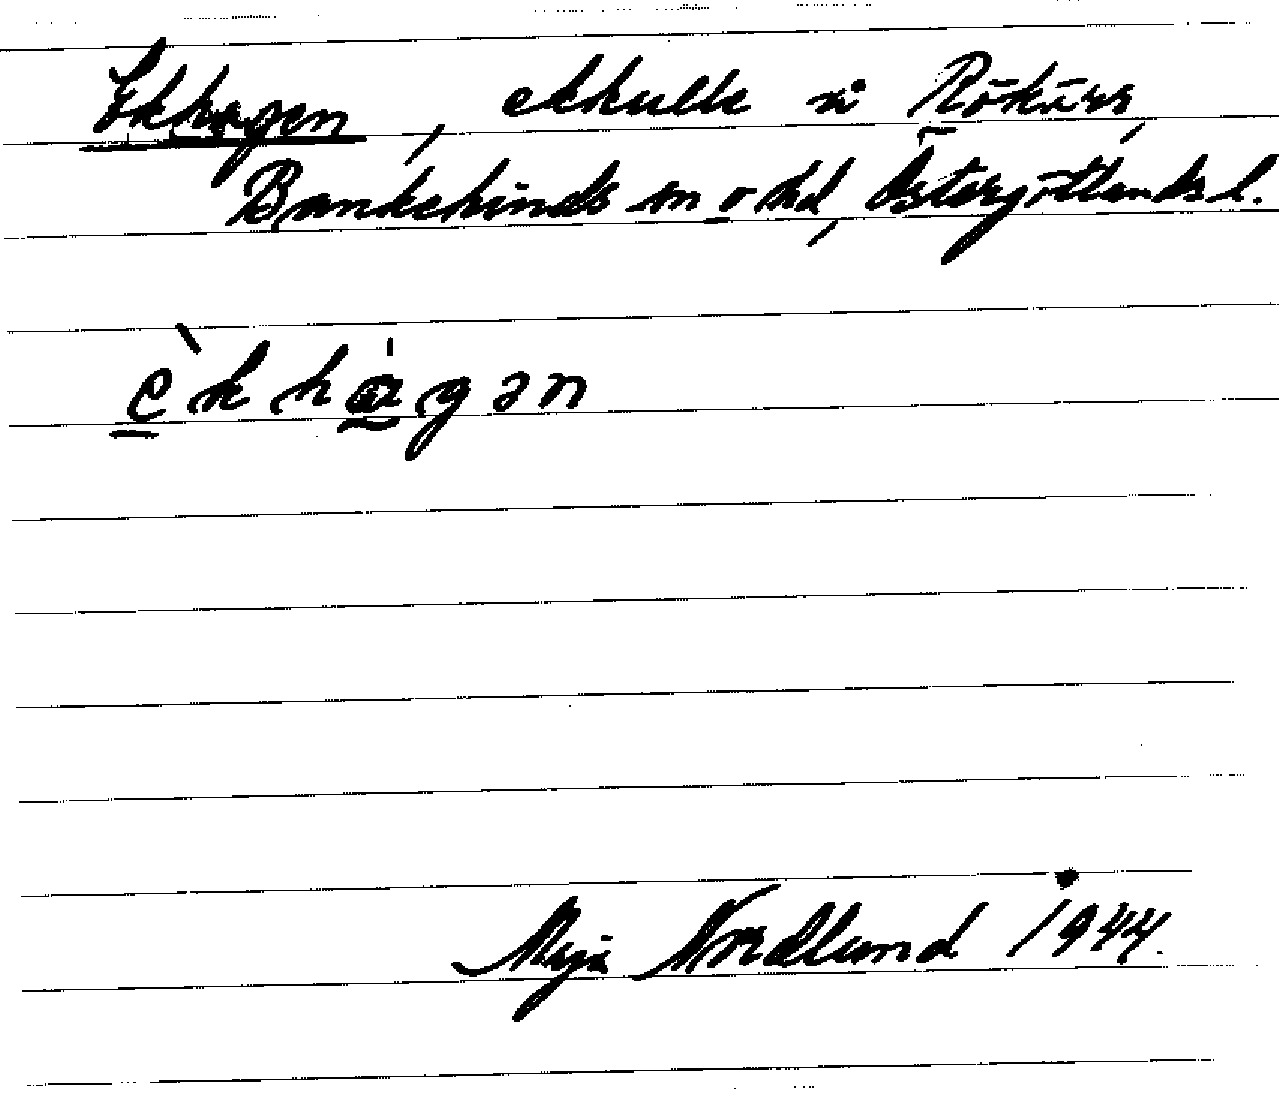 Ekhagen, ekkulle i Rökärr,
Bankekinds sn o hd, Östergötlands l.
èkhạ̄gən
Maja Nordlund 1944.